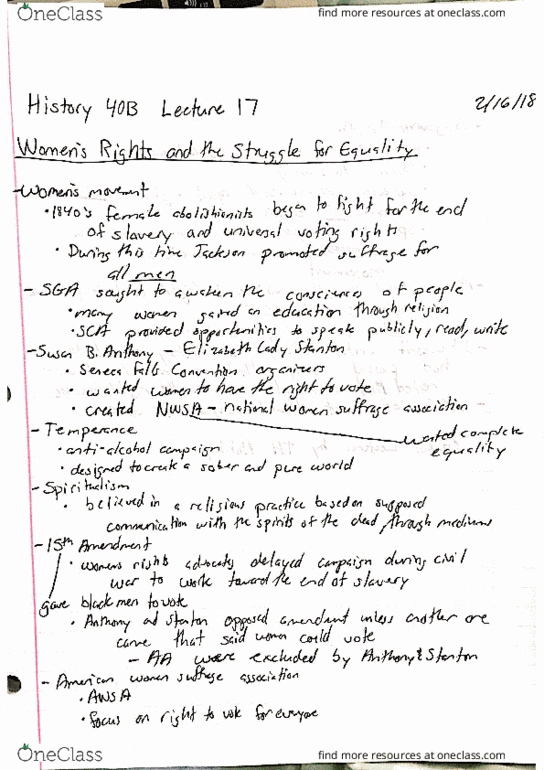 OneClass
find more resources at oneclass.com
History 40B Lecture 17
2/16/18
Women's Rights and the Struggle for Equality
-Women's movement
•1840's female abolishionists began to fight for the end
of slavery and universal voting rights
• During this time Jackson promoted suffrage for
all men
- SGA sought to awaken the conscience of people
•many women gained an education through religion
•SCA provided opportunities to speak publicly, read, write
-Susan B. Anthony - Elizabeth Cady Stanton
• Seneca Falls Convention organizers
• wanted women to have the right to vote
• created NWSA - national women suffrage association
wanted complete
equality
- Temperance
•anti-alcohol campaign
•designed to create a sober and pure world
- Spiritualism
• believed in a religious practice based on supposed
communication with the spirits of the dead, through mediums
-15th Amendment
• womens rights advocates delayed campaign during civil
war to work toward the end of slavery
gave black men to vote
• Anthony and Stanton opposed amendment unless another one
came that said women could vote
- AA were excluded by Anthony & Stanton
- American women suffrage association
• AWSA
• focus on right to vote for everyone
OneClass
find more resources at oneclass.com